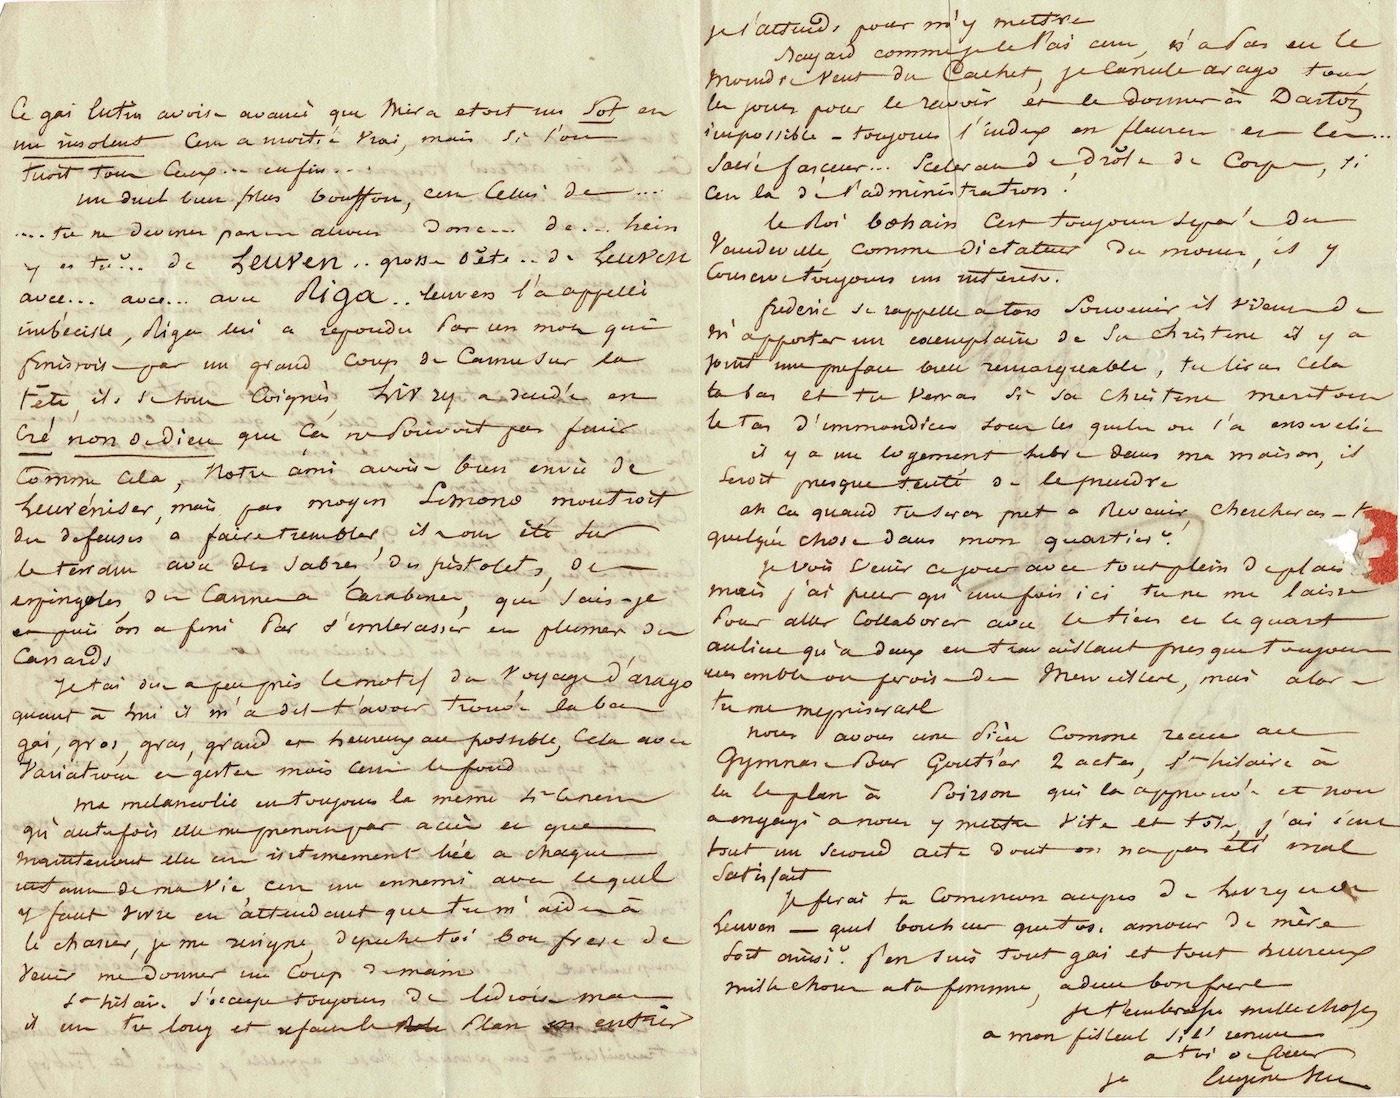 Ce gai lutin avoit avancé que Mira etoit un sot en
un insolent C'en a moitié vrai, mais si l'on
tuoit tous ceux... enfin...
un duel bien plus bouffon, c'en celui de ....
.... tu ne devines pas allons donc... de... hein
y es tu?.. de Leuven.. grosse bête.. de Leuven
avec... avec... avec Riga.. Leuven l'a appellé
imbécille, Riga lui a repondu par un mot qui
finissoit par un grand coup de canne sur la
tête, ils se sont coignés, Livry a decidé en
cré nom de dieu que ça ne pouvoit pas finir
comme cela, Notre ami avoit bien envie de
Leuvéniser, mais pas moyen montroit
des defenses a faire trembler, ils ont été sur
le terrain avec des sabres, des pistolets, des
espingoles, des cannes a carabines, que sais-je
et puis on a fini par s'embrasser et plumer des
canards
Je t'ai dit a peu près le motif du voyage d'arago
quant à lui il m'a dit t'avoir trouvé la bas
gai, gros, gras, grand et heureux au possible, cela avec
variations et gestes mais c'en le fond
ma melancolie en toujours la même
qu'autrefois elle me prenoit par accès et que
maintenant elle en intimement liée a chaque
instant de ma vie c'en un ennemi avec lequel
il faut vivre en attendant que tu m'aides à
le chasser, je me resigne, depeche toi bon frere de
venir me donner un coup de main
St hilaire s'occupe toujours de ledroit mais
il en tu long et refaire le plan en entier
je l'attends pour m'y mettre
Bayard comme je l'ai cru, n'a pas eu le
moindre vent du Cachet, je tous
les jours pour le ravoir et le donner à Dartois
impossible - toujours l'index en en l'...
Sacré farceur... Scelerat de, drôle de corps, si
c'en là de l'administration.
le Roi bohain c'est toujours separé du
Vaudeville, comme dictateur du moins, il y
conserve toujours un interêt.
frederic se rappelle a ton souvenir, il vient de
m'apporter un exemplaire de sa Christine il y a
joint une preface bien remarquable, tu liras cela
la bas et tu verras si sa christine meritoit
le tas d'immondices sous lesquelles on l'a ensevelie
il y a un logement libre dans ma maison, il
seroit presque tenté de le prendre
ah ça quand tu seras pret a Revenir, chercheras-t
quelque chose dans mon quartier?
je vois venir ce jour avec tout plein de plaisir
mais j'ai peur qu'une fois ici tu ne me laisses
pour aller collaborer avec le tiers et le quart
au lieu qu'a deux en travaillant presque toujours
ensemble on feroit des merveilles, mais alors
tu me mepriserais
nous avons une pièce comme reçue au
Gymnase pour Gontier 2 actes, St hilaire à
lu le plan à Poirson qui l'a approuvé et nous
a engagé a nous y mettre vite et tôt, j'ai ecrit
tout un second acte dont on n'a pas été mal
satisfait
Je ferai ta commission aupres de Livry et de
Leuven — quel bonheur que ton amour de mère
soit ainsi? j'en suis tout gai et tout heureux
mille choses a ta femme, adieu bon frere
je t'embrasse mille choses
a mon filleul s'il venue
a toi de coeur
je Eugène Sue